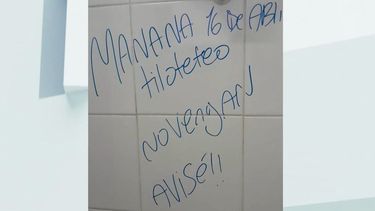 MAÑANA 16 DE ABRI
tiloteteo
NO VENGAN
AVISÉ!!